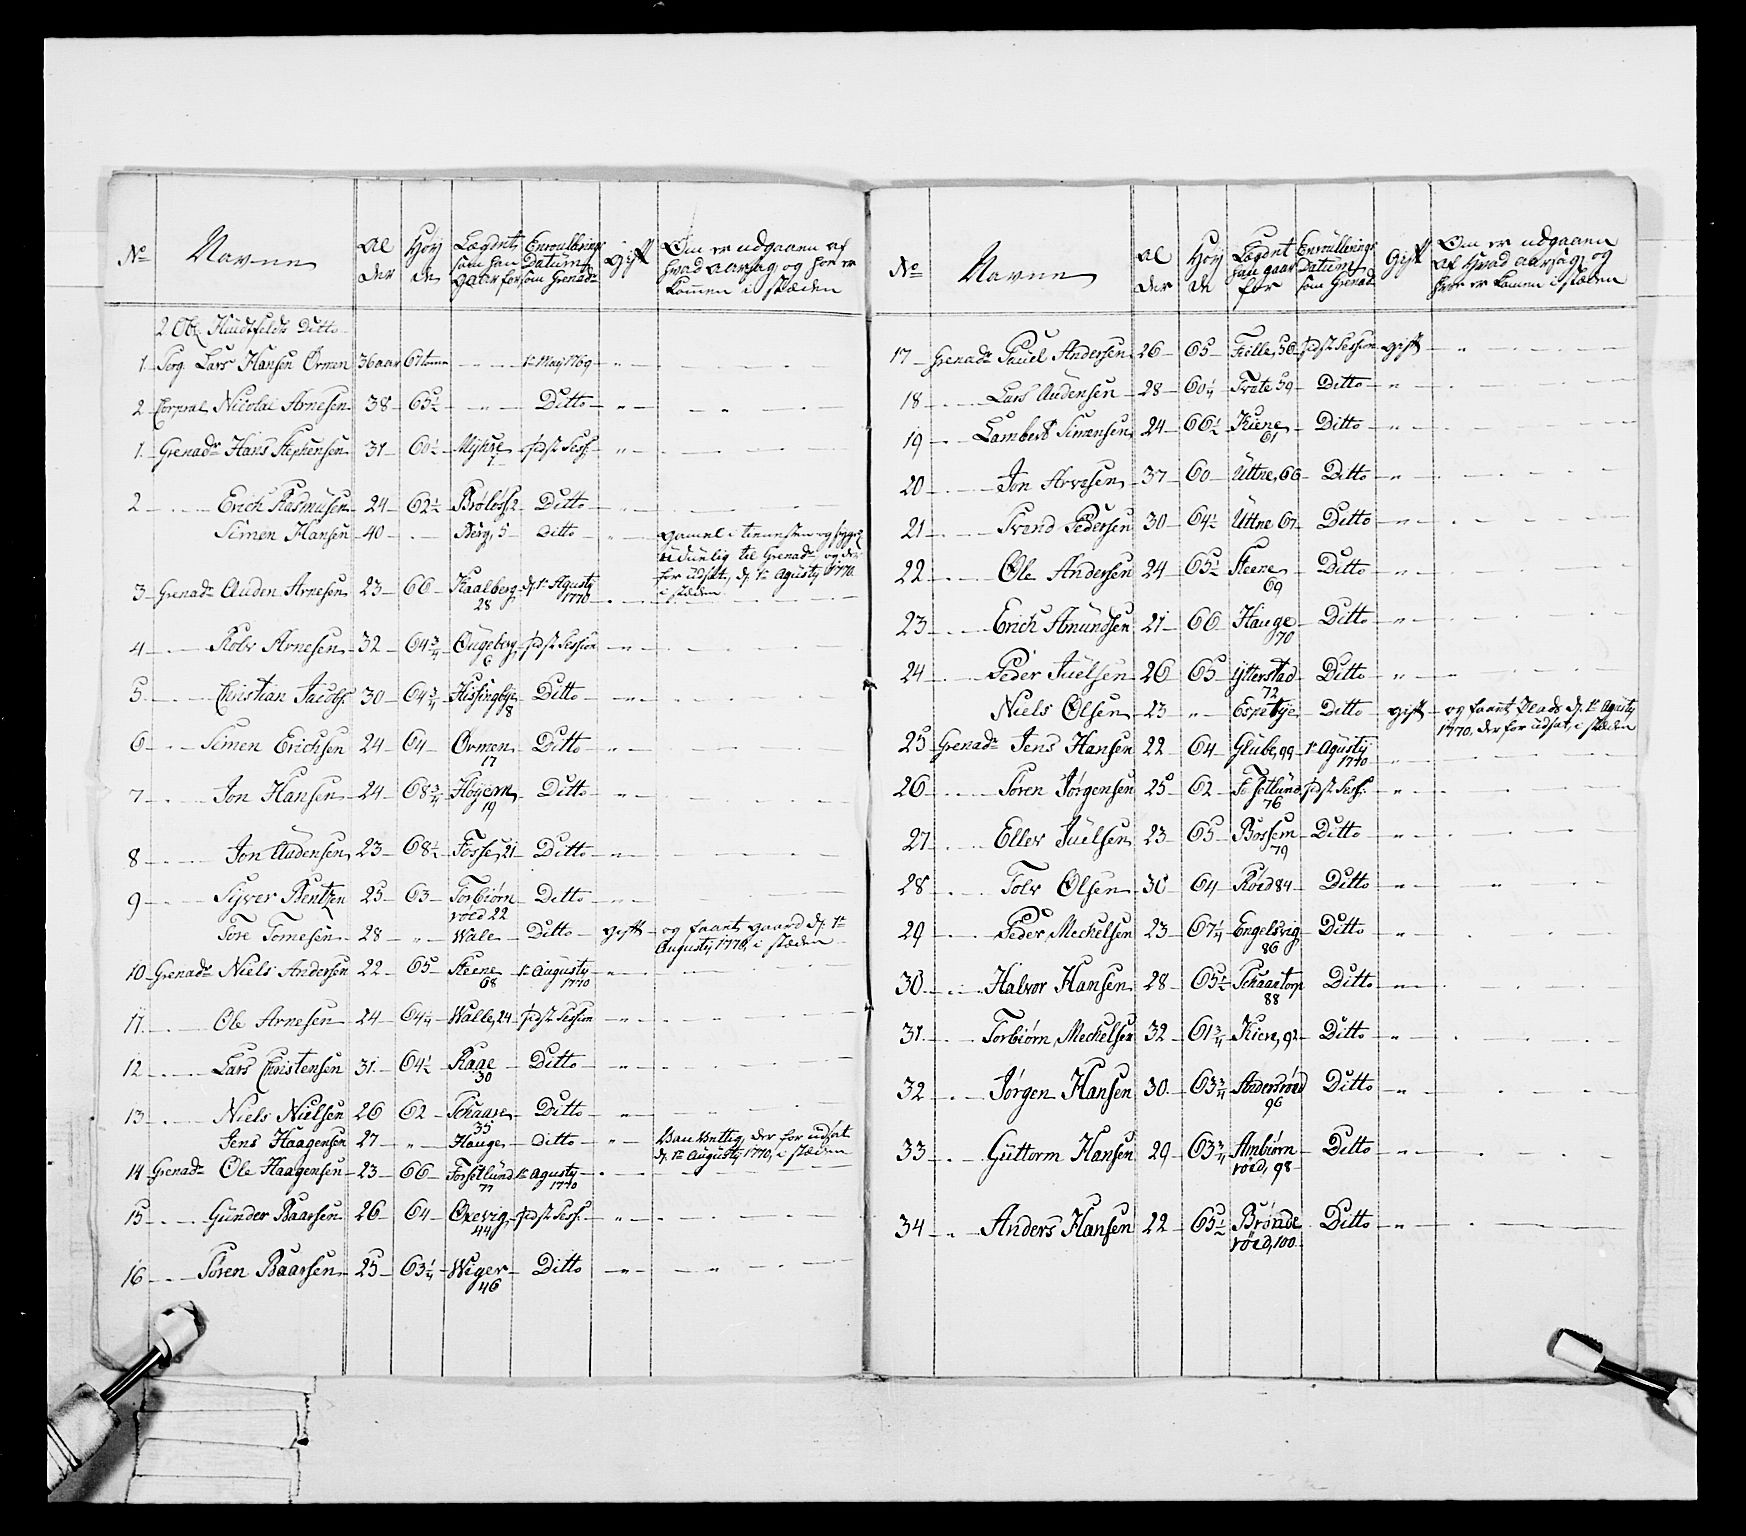 No
Navne
Al
der
Høy
de
Lægdet
som han
gaar for
Enroullerings
Datum
som Grenadr
gift
Om er udgaaen af
hvad aarsag og hvor er
kommen i stæden
2 Obl. Huidtfeldts Ditto
1. Serg. Lars Hansen Ormen 36 aar 61 tomm — 1te May 1769 — „ —
2 Corporal Nicolai Arnesen 38 — 63½ — „ — Ditto — „ —
1. Grenadr Hans Stephensen 31 — 60½ — Myhre 7 — sidst Sess. — „ —
2 — Erich Rasmusen 24 — 62½ Brøløss 2 Ditto — „ —
Simen Hansen 40 — Berg, 5 ditto — „ — gamel i tienesten og
udúelig til Grenadr og der
for udsat, d. 1te Agusty 1770.
i stæden
3 Grenadr Auden Arnesen 23 — 66 — Kaalberg 28 d. 1te Agusty 1770
4 — Rolv Arnesen 32 — 64¾ Ougeberg 6 sidst Session — „ —
5 — Christian Jacobs. 30 — 64¾ Kissingbye 8 Ditto — „ —
6 — Simen Erichsen 24 — 64 — Ormen 17 Ditto — „ —
7 — Jon Hansen 24 — 68¾ Høyern 19 Ditto — „ —
8 — Jon Audensen 23 — 68½ Fosse, 21 Ditto — „ —
9 — Syver Bentzen 25 — 63 — Torbiørn
røed 22 Ditto — „ —
Tore Tomesen 28 — „ — Wale — Ditto — gift — og faaet gaard d. 1te
Augusty 1770, i stæden
10 Grenadr Niels Andersen 22 — 65 — Steene 68 1te Augusty 1770 — „ —
11 — Ole Arnesen 24 — 64¼ Walle, 24 sidst Session — „ —
12 — Lars Christensen 31 — 64½ Raae 30 — Ditto — „ —
13 — Niels Nielsen 26 62 — Schaare 35 Ditto — „ —
Jens Haagensen 27 — „ — Hauge, ditto — „ — Van Vittig, der for udsat
d. 1te Augusty 1770, i stæden
14 Grenadr Ole Haagensen 23 — 66 — Torsetlund 77 1te Agusty 1770
15 — Gunder Baarsen 26 — 64 — Oxevig 44 sidst Sess. — „ —
16 — Søren Baarsen 25 — 63¼ Weger 46 Ditto — „ —
No
Navne
Al
der
Høy
de
Lægdet
han gaar
for
Enroullerings
Datum
som Grenad
Gift
Om er udgaaen
af hvad aarsag, og
hvor er komen i stæden
17 Grenadr Pauel Andersen 26 — 65 — 56 sidst Session gift — „ —
18 — Lars Audensen — 28 — 60¼ Trote 59 Ditto — „ —
19 — Lambert Simensen 24 — 66½ Kiene 61 Ditto — „ —
20 — Jon Arvesen 37 — 60 — Uttne, 66 Ditto — „ —
21 — Svend Pedersen 30 — 64½ Uttne 67 Ditto — „ —
22 — Ole Andersen 24 — 65½ Steene 69 Ditto — „ —
23 — Erich Amundsen 21 — 66 Hauge 70 Ditto — „ —
24 — Peder Juelsen 26 — 65 — Ytterstad 72 Ditto — „ —
Niels Olsen 23 — „ — Espetye Ditto gift — og faaet Plads d. 1te Agusty
1770, der for udsat, i stæden
25 Grenadr Jens Hansen 22 — 64 Glube, 99 1te Agusty 1770
26 — Søren Jørgensen 25 — 62 — 76 sidst Sess. — „ —
27 — Ellev Juelsen 23 — 65 — Bossem 79 Ditto — „ —
28 — Tolv Olsen — 30 — 64 Røed 84 — Ditto — „ —
29 — Peder Meckelsen 23 — 67¼ Engelsvig 86 Ditto — „ —
30 — Halvor Hansen 28 — 65½ Schaartorp 88 Ditto — „ —
31 — Torbiørn Meckelsen 32 — 61¾ Kien, 92 Ditto — „ —
32 — Jørgen Hansen 30. — 63¾ Andersrød 96 Ditto — „ —
33 — Guttorm Hansen 29 — 63¾ Ambiørn
røed, 98 Ditto — „ —
34 — Anders Hansen 22 — 65½ Brønde
røed, 100. Ditto — „ —